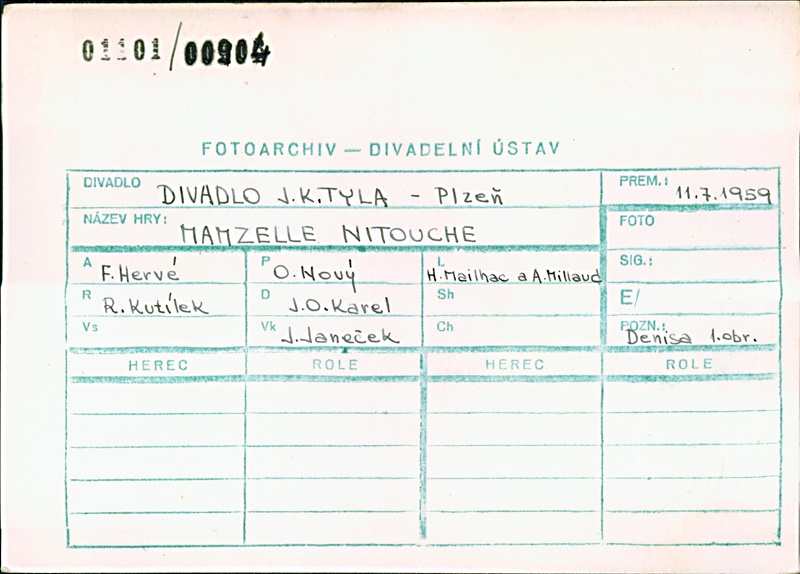 01101/00904
FOTOARCHIV — DIVADELNÍ ÚSTAV
DIVADLO DIVADLO J.K.TYLA - Plzeň PREM.: 11.7.1959
NÁZEV HRY: MAMZELLE NITOUCHE FOTO
A F.Hervé P O.Nový L H.Mailhac a A.Millaud SIG.:
R R.Kutílek D J.O.Karel Sh E/
Vs Vk J.Janeček Ch POZN.: Denisa 1.obr.
HEREC ROLE HEREC ROLE